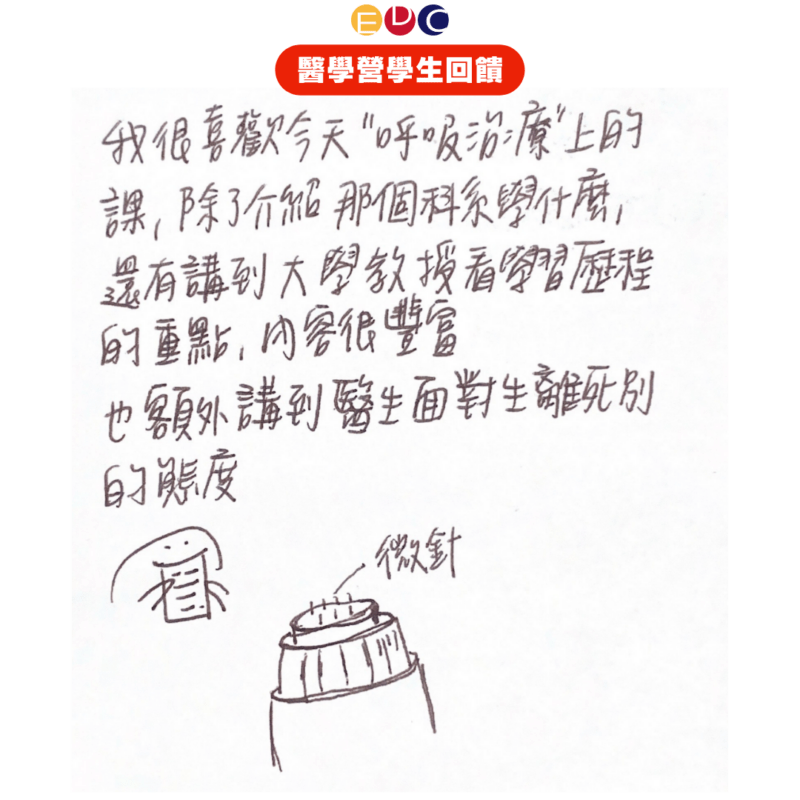 EDC
醫學營學生回饋
我很喜歡今天"呼吸治療"上的
課,除了介紹那個科系學什麼,
還有講到大學教授看學習歷程
的重點,內容很豐富
也額外講到醫生面對生離死別
的態度
微針